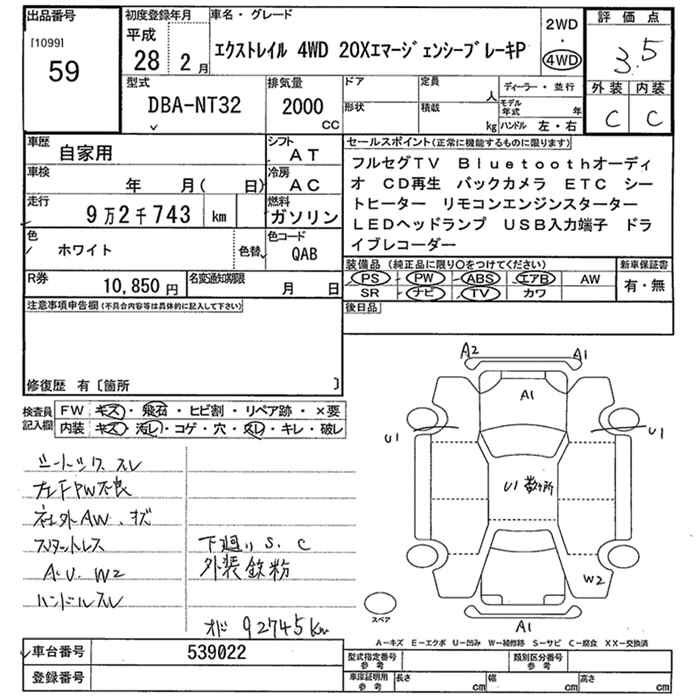 出品番号
[1099]
59
初度登録年月
平成
28 2月
車名・グレード
エクストレイル 4WD 20XエマージェンシーブレーキP
2WD
・
4WD
評価点
3.5
外装 内装
C C
型式
DBA-NT32
排気量
2000
CC
ドア
形状
定員
人
積載
kg
ディーラー・並行
モデル年式 年
ハンドル 左・右
車歴
自家用
シフト
AT
車検
年 月( 日)
冷房
AC
走行
9万2千743 km
燃料
ガソリン
色
ホワイト
色替
色コード
QAB
R券
10,850円
名変通知期限
月 日
セールスポイント(正常に機能するものに限ります)
フルセグTV Bluetoothオーディ
オ CD再生 バックカメラ ETC シー
トヒーター リモコンエンジンスターター
LEDヘッドランプ USB入力端子 ドラ
イブレコーダー
装備品(純正品に限り○をつけてください)
PS PW ABS エアB AW
SR ナビ TV カワ
新車保証書
有・無
後日品
注意事項申告欄(不具合内容等は具体的に記入して下さい)
修復歴 有〔箇所 〕
検査員
記入欄
FW キズ・飛石・ヒビ割・リペア跡・×要
内装 キズ・汚レ・コゲ・穴・スレ・キレ・破レ
シートックスレ
左FPW不良
社外AW.キズ
スタットレス
A.U.W2
ハンドルスレ
下廻りS.C
外装鉄粉
オド92745km
A2 A1
A1
U1 U1
U1数ヶ所
W2
A1
スペア
A−キズ E−エクボ U−凹み W−補修跡 S−サビ C−腐食 XX−交換済
車台番号 539022
登録番号
型式指定番号
参考
類別区分番号
参考
車庫証明用
参考
長さ cm
幅 cm
高さ cm